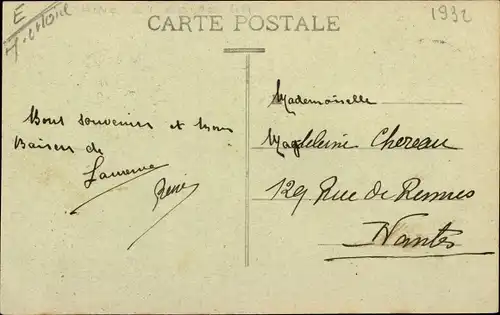 E
CARTE POSTALE
1932
Bons souvenirs et bons
Baisers de
Mademoiselle
Magdeleine Chereau
129 Rue de Rennes
Nantes